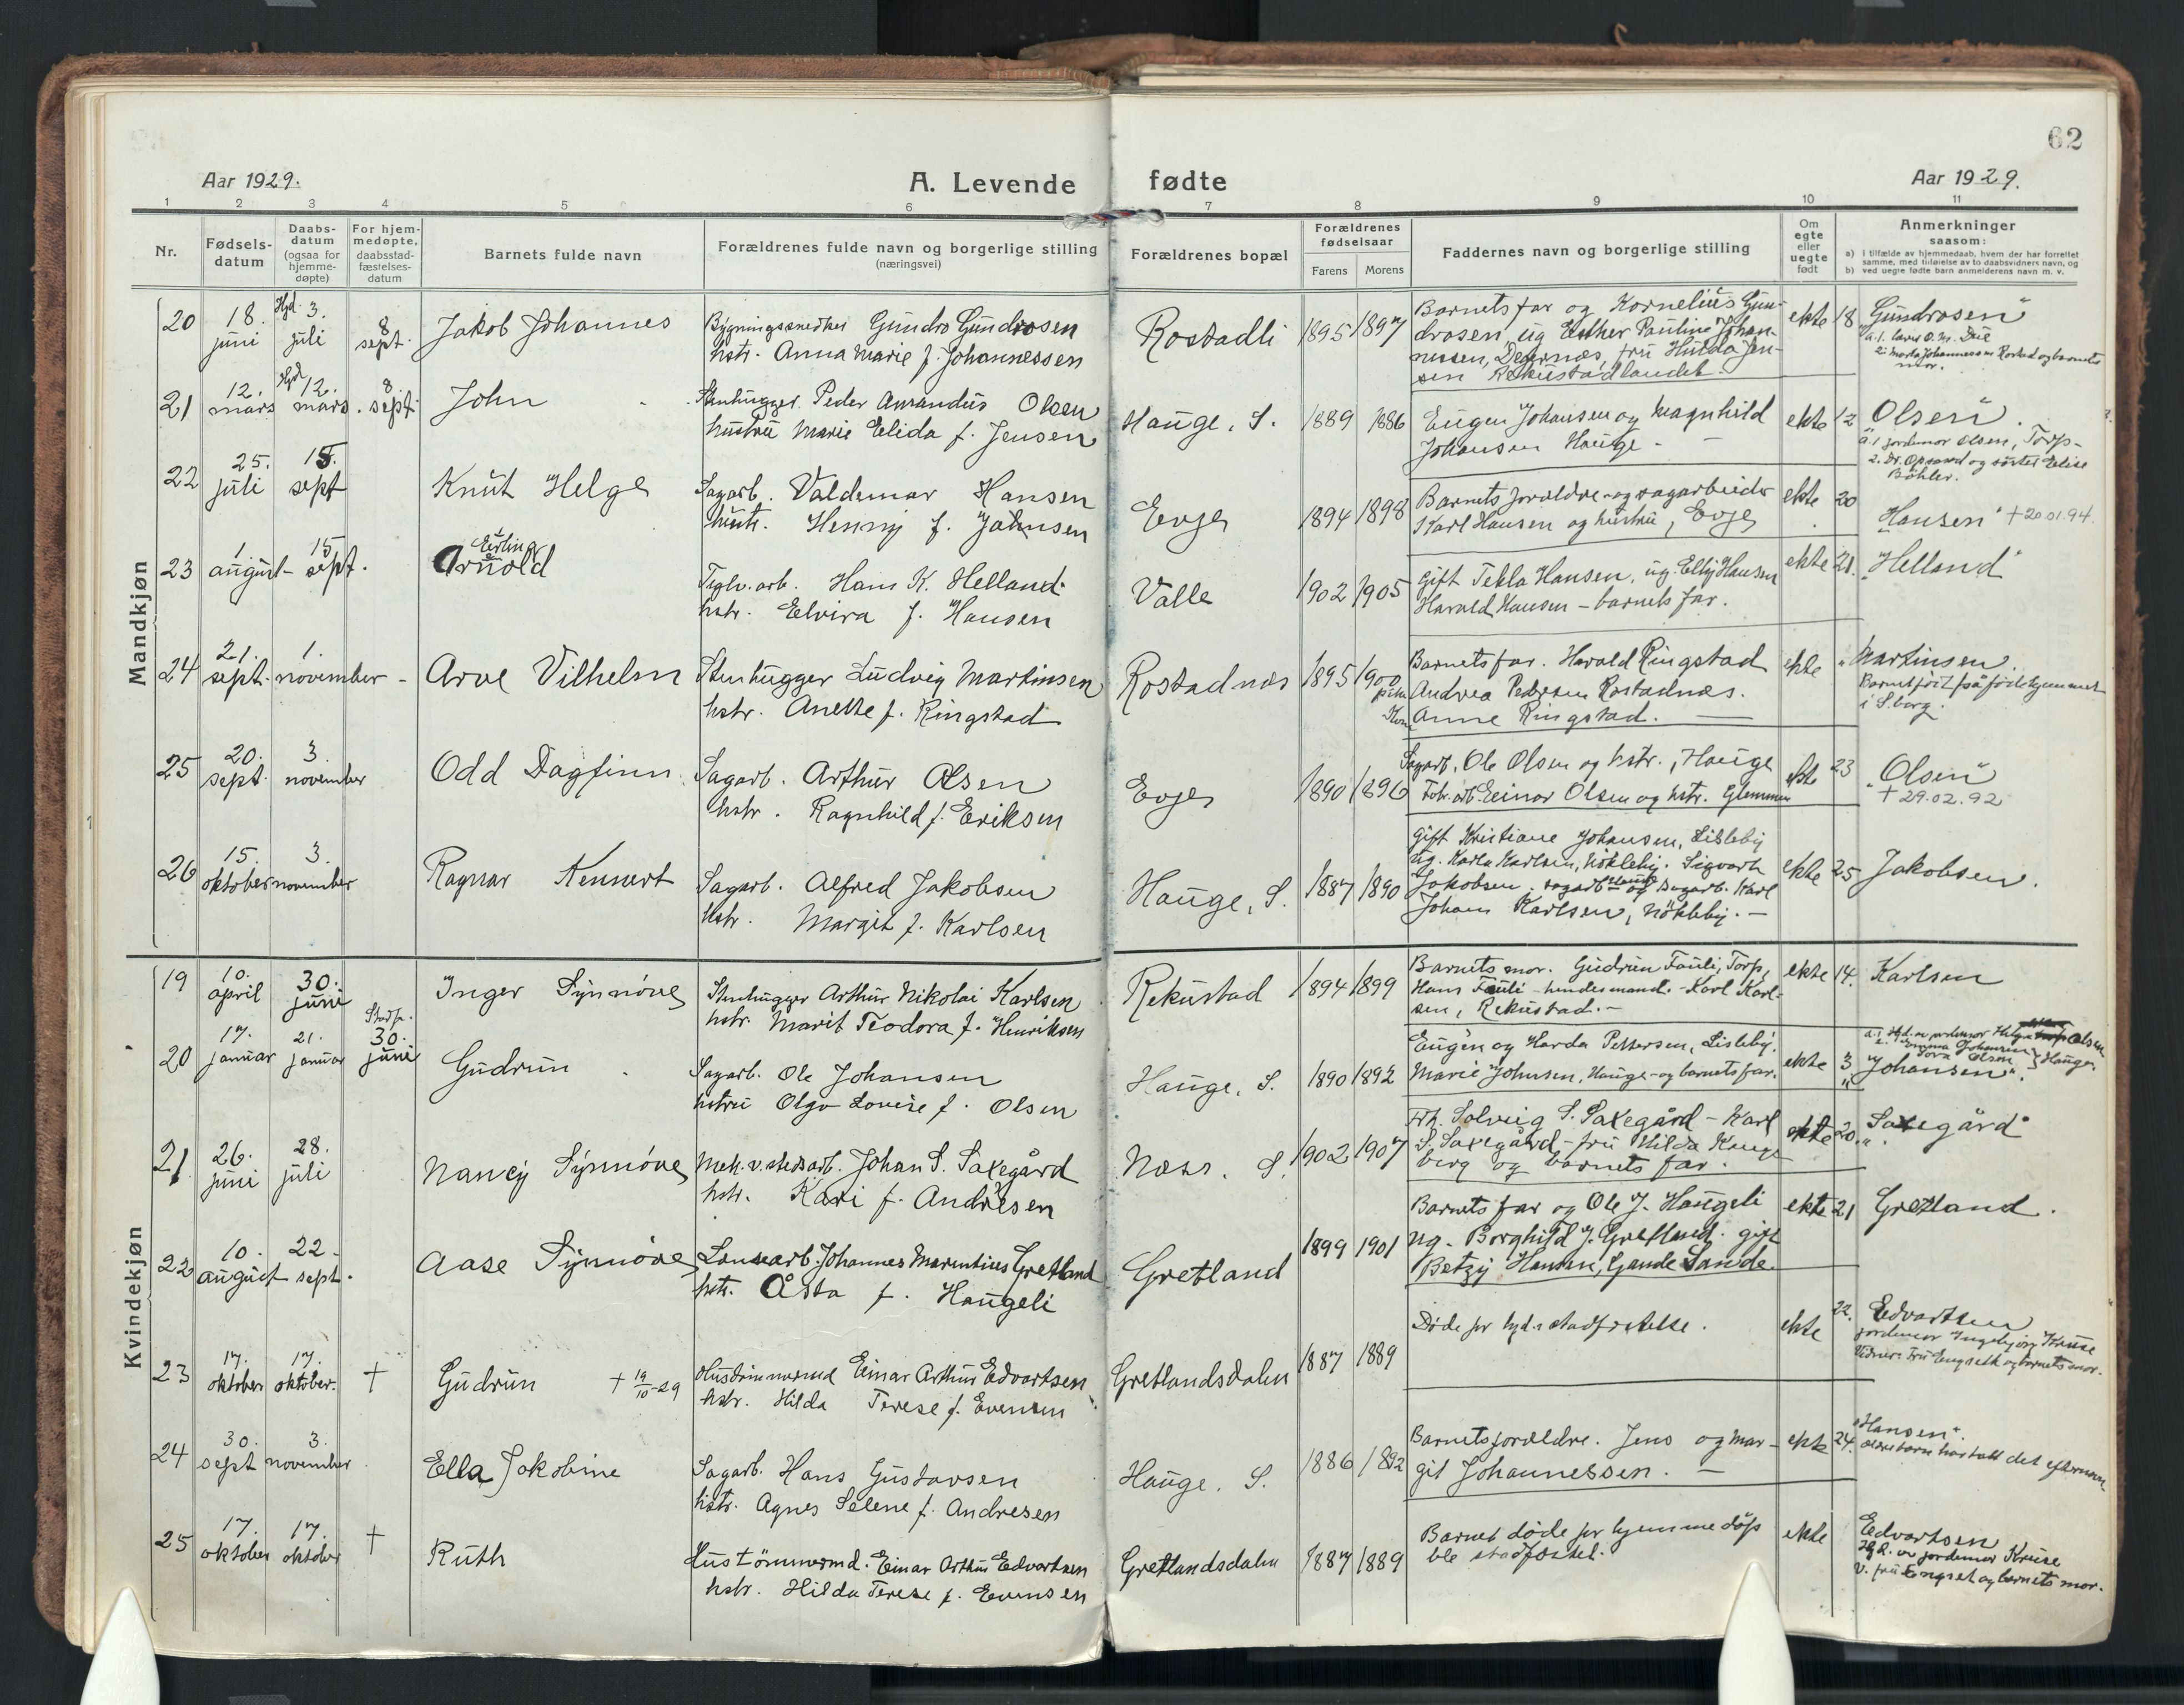 62
Aar 1929.
A. Levende fødte
Aar 1929.
1 2 3 4 5 6 7 8 9 10 11
Nr.
Fødsels-
datum
Daabs-
datum
(ogsaa for
hjemme-
døpte)
For hjem-
medøpte,
daabsstad-
fæstelses-
datum
Barnets fulde navn
Forældrenes fulde navn og borgerlige stilling
(næringsvei)
Forældrenes bopæl
Forældrenes
fødselsaar
Farens
Morens
Faddernes navn og borgerlige stilling
Om
egte
eller
uegte
født
Anmerkninger
saasom:
a) i tilfælde av hjemmedaab, hvem der har forrettet
samme, med tilføielse av to daabsvidners navn, og
b) ved uegte fødte barn anmelderens navn m. v.
Mandkjøn
20
18.
juni
Hjd. 3.
juli
8
sept.
Jakob Johannes
Bygningssnedker Gundro Gundrosen
hstr. Anna Marie f. Johannessen
Rostadli
1895
1897
Barnets far og Kornelius Gun-
drosen, ug Esther Pauline og Johan-
nessen, Degernæs, fru Hulda Jen-
sen Rekustadlandet.
ekte
18
"Gundrosen"
21
12.
mars
Hjd
12.
mars.
8.
sept.
John
Stenhugger. Peder Amandus Olsen
hustru Marie Elida f. Jensen
Hauge, S.
1889
1886
Eugen Johansen og Magnhild
Johansen Hauge. -
ekte
12
Olsen".
a. 1 jordmor Olsen, Torp-
2. Dr. Opsand og søster Elise
Böhler.
22
25.
juli
15.
sept
Knut Helge
Sagarb. Valdemar Hansen
hustr. Henny f. Johnsen
Evje
1894
1898
Barnets forældre og sagarbeider
Karl Hansen og hustru, Evje
ekte
20
"Hansen" + 20.01.94.
23
1.
august
15
sept.
Erling
Arnold
Teglv. arb. Hans K. Helland
hstr. Elvira f. Hansen
Valle
1902
1905
Gift Tekla Hansen, ug. Elly Hansen
Harald Hansen - barnets far.
ekte
21.
"Helland"
24
21.
sept.
1.
november -
Arve Vilhelm
Stenhugger Ludvig Martinsen
hstr. Anette f. Ringstad
Rostadnæs
1895
1900
Barnets far. Harald Ringstad
Andrea Pedersen Rostadnæs.
Anne Ringstad. -
ekte
"Martinsen.
Barnet født på fødehjemmet
i S.borg.
25
20.
sept.
3.
november
Odd Dagfinn
Sagarb. Arthur Olsen
hstr. Ragnhild f. Eriksen
Evje
1890
1896
Sagarb. Ole Olsen og hstr., Hauge
Fabr. arb. Einar Olsen og hstr. Glemmen
ekte
23
"Olsen"
+ 29.02.92
26
15.
oktober
3.
november
Ragnar Kennert
Sagarb. Alfred Jakobsen
hstr. Margit f. Karlsen
Hauge, S.
1887
1890
Gift Kristiane Johansen, Lisleby
ug. Karla Karlsen, Nökleby. Sigvart
Jakobsen. sagarb. Hauge og sagarb. Karl
Johans Karlsen, Nökleby. -
ekte
25
Jakobsen.
Kvindekjøn
19
10.
april
30.
juni
Inger Synnöve
Stenhugger Arthur Nikolai Karlsen
hstr. Marit Teodora f. Henriksen
Rekustad
1894
1899
Barnets mor. Gudrun Fauli, Torp,
Hans Fauli - hendes mand. - Karl Karl-
sen, Rekustad. -
ekte
14.
Karlsen
20
17.
januar
21.
januar
Stadf.
30.
juni
Gudrun
Sagarb. Ole Johansen
hstru Olga Lovise f. Olsen
Hauge, S.
1890
1892
Eugen og Harda Pettersen, Lisleby.
Marie Johnsen, Hauge - og barnets far.
ekte
3
"Johansen".
21
26.
juni
28.
juli
Nancy Synnöve
Mek. v.stedsarb. Johan S. Saxegård
hstr. Kari f. Andresen
Næss. S.
1902
1907
Frk. Solveig S. Saxegård - Karl
S. Saxegård - fru Hilda Kongs-
berg og barnets far.
ekte
20.
"Saxegård"
22
10.
august
22.
sept.
Aase Synnöve
Lensearb. Johannes Marentius Gretland
hstr. Åsta f. Haugeli
Gretland
1899
1901
Barnets far og Ole J. Haugeli
ug. Borghild J. Gretland. gift
Betzy Hansen, Gande Sande.
ekte
21
Gretland.
23
17.
oktober
17.
oktober.
+
Gudrun + 19/10-29
Hustömmermd Einar Arthur Edvartsen
hstr. Hilda Terese f. Evensen
Gretlandsdalen
1887
1889
Døde før hjd.s stadfæstelse.
ekte
22.
Edvartsen
jordmor Ingebjörg Kruse
Vidner: Fru Engseth og barnets mor.
24
30.
sept
3.
november
Ella Jakobine
Sagarb. Hans Gustavsen
hstr. Agnes Selene f. Andresen
Hauge. S.
1886
1892
Barnets forældre. Jens og Mar-
git Johannessen. -
ekte
24.
"Hansen".
ældre barn har tatt det efternavn
25
17.
oktober
17.
oktober
+
Ruth
Hustömmermd. Einar Arthur Edvartsen
hstr. Hilda Terese f. Evensen
Gretlandsdalen
1887
1889
Barnet döde før hjemmedöp
ble stadfæstet.
ekte
Edvartsen
Hjd. av jordemor Kruse
V. fru Engset og barnets mor.